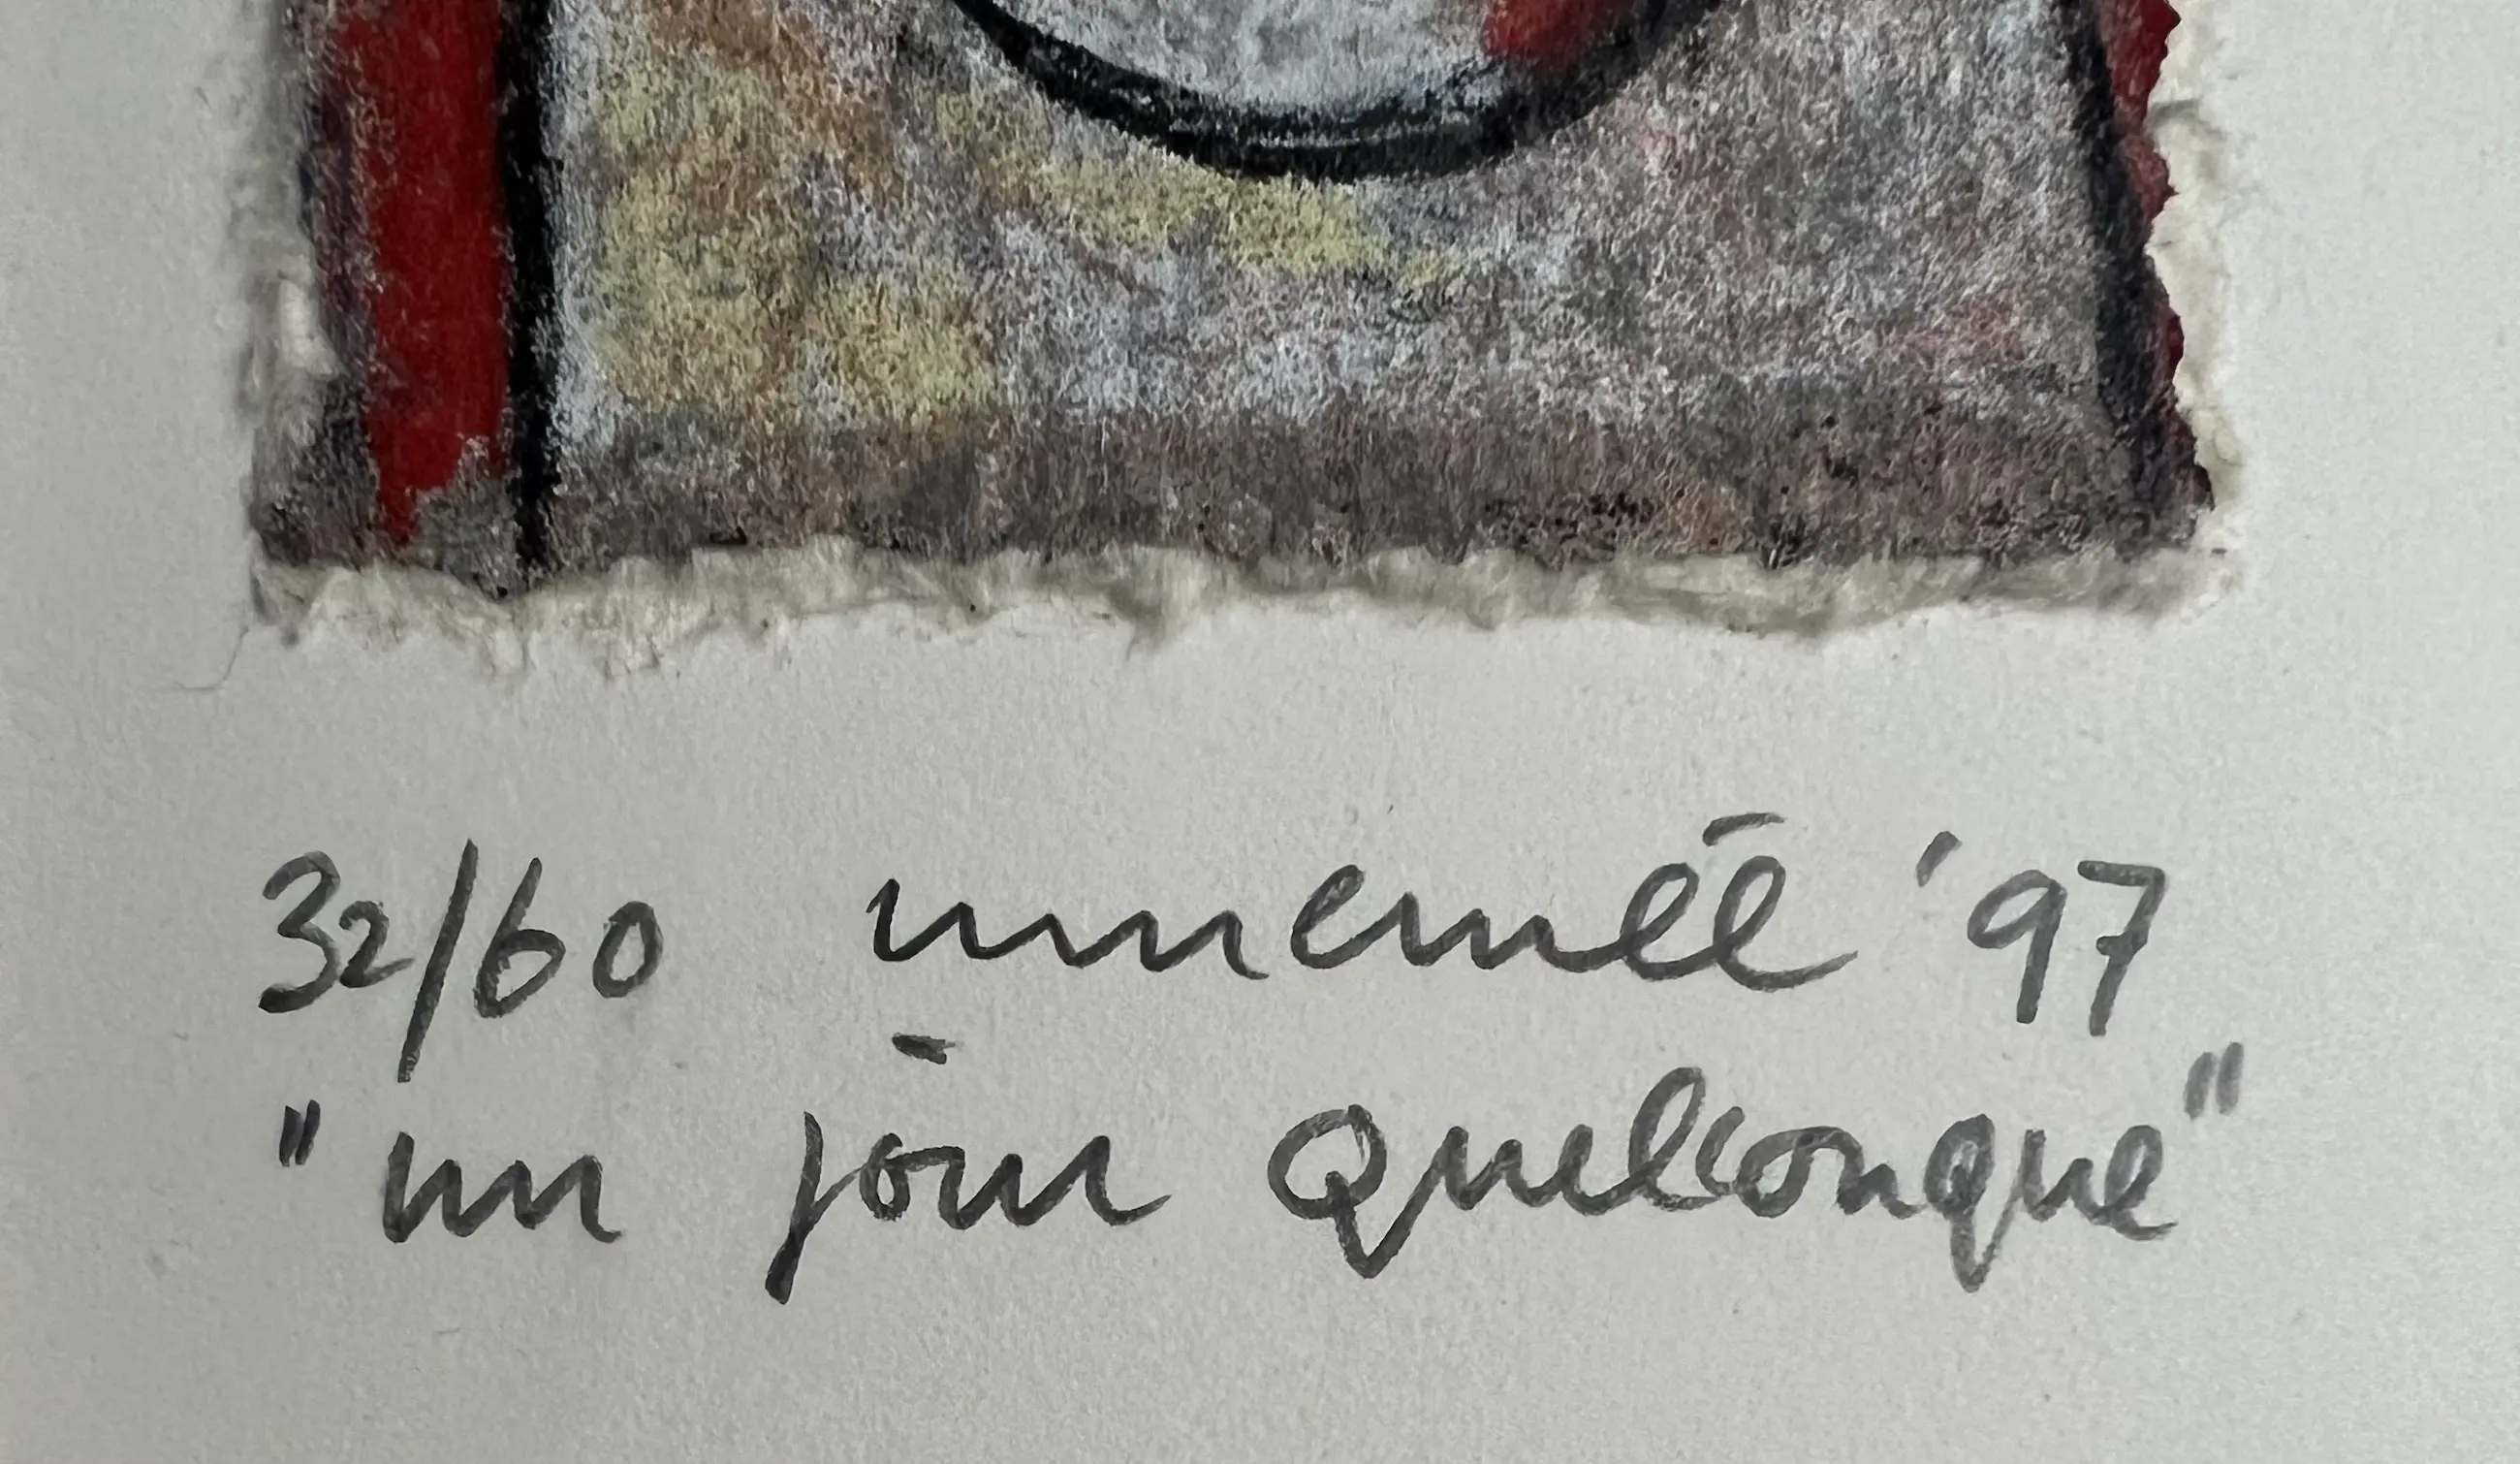 32/60 unnemée '97
"un jour Quelconque"